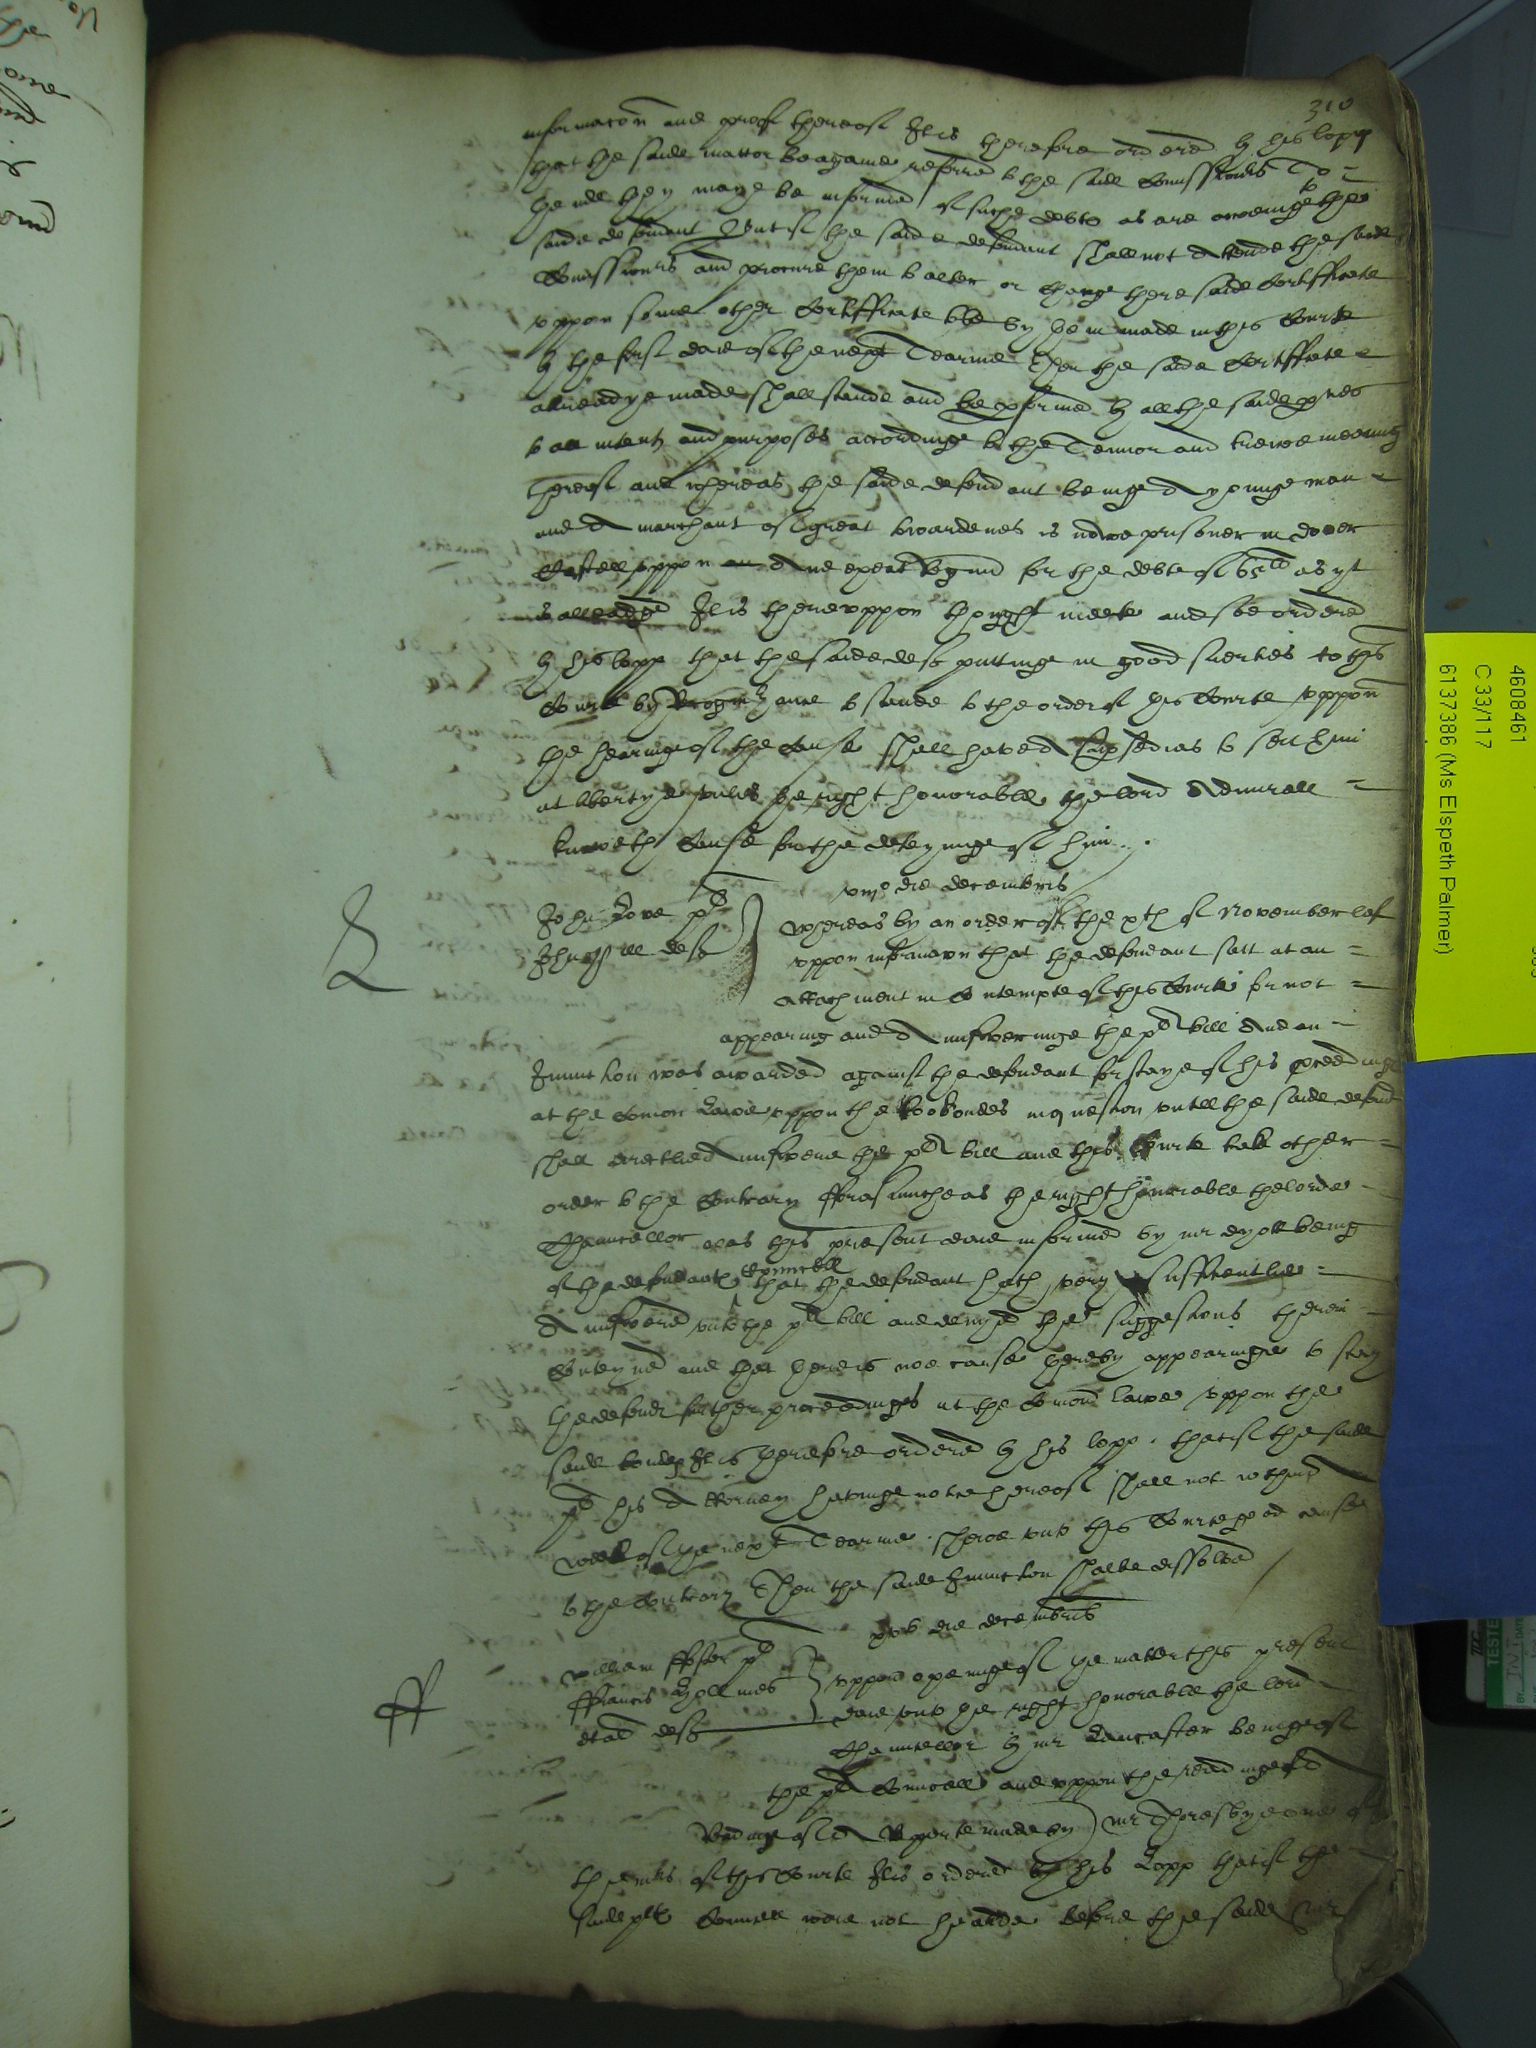 310
informacon and proof thereof It is therefore ordered by his lopp
that the saide matter be againe referred to the said Comissioners To
thende they maye be informed of suche debts as are oweinge to the
saide defendant But if the saide defendant shall not Attende the saide
Comissioners and procure them to alter or change there saide Certifficate
uppon some other Certifficate to be by them made in this Courte
by the first daie of the next Tearme Then the saide Certifficate
alreadye made shall stande and be pformed by all the saide pties
to all intents and purposes accordinge to the Tennor and trewe meaning
thereof and whereas the saide defendant beinge A younge man
and A marchant of great towardenes is nowe prisoner in dover
Castell uppon Ane for the debte of 65li as yt
is alleadged It is thereuppon thought meete and soe ordered
by his lopp that the saide deft puttinge in good suerties to this
Courte by Recognizance to stande to the order of this Courte uppon
the hearinge of the Cause shall have A Supsedias to sett him
at libertye unles the right honorable the lord Admirall
knoweth Cause for the deteyninge of him
viijo die decembris
John Love plt
John Gyll deft
Whereas by an order of the xth of November last
uppon informacon that the defendant satt at an
attachment in Contempte of this Courte for not
appearing and Answeringe the plts bill And an
Iniunction was awarded against the defendant for staye of his pceedings
at the Comon Lawe uppon the bondes in question untill the saide defendt
shall directlie Answere the plts bill and this Courte take other
order to the Contrary fforasmuche as the right honorable the lorde
Chauncellor was this present daie informed by mr dyott being
of the defendants Councell that the defendant hath very sufficientlie
Answered unto the plts bill and denyed the suggestions therein
Conteyned and that there is noe cause thereby appearinge to stay
the defendts further proceedings at the Comon lawe uppon the
saide bondes It is therefore ordered by his lopp that if the saide
plt his Attorney havinge notice hereof shall not within A
weeke of the next Tearme shewe unto this Courte good cause
to the Contrary Then the saide Iniunction shalbe dissolved
xvo die decembris
William ffoster plt
ffrancis Hollmes
et al deft
uppon openinge of the matter this present
daie unto the right honorable the lord
Chauncellor by mr Lancaster beinge of
the plts Councell and uppon the readinge of A
Redinge of A Reporte made by mr Thoresbye one of
the mrs of this Courte It is ordered by his Lopp that if the
saide plts Councell were not hearde before the saide mr
4608461
C 33/117
6137386 (Ms Elspeth Palmer)